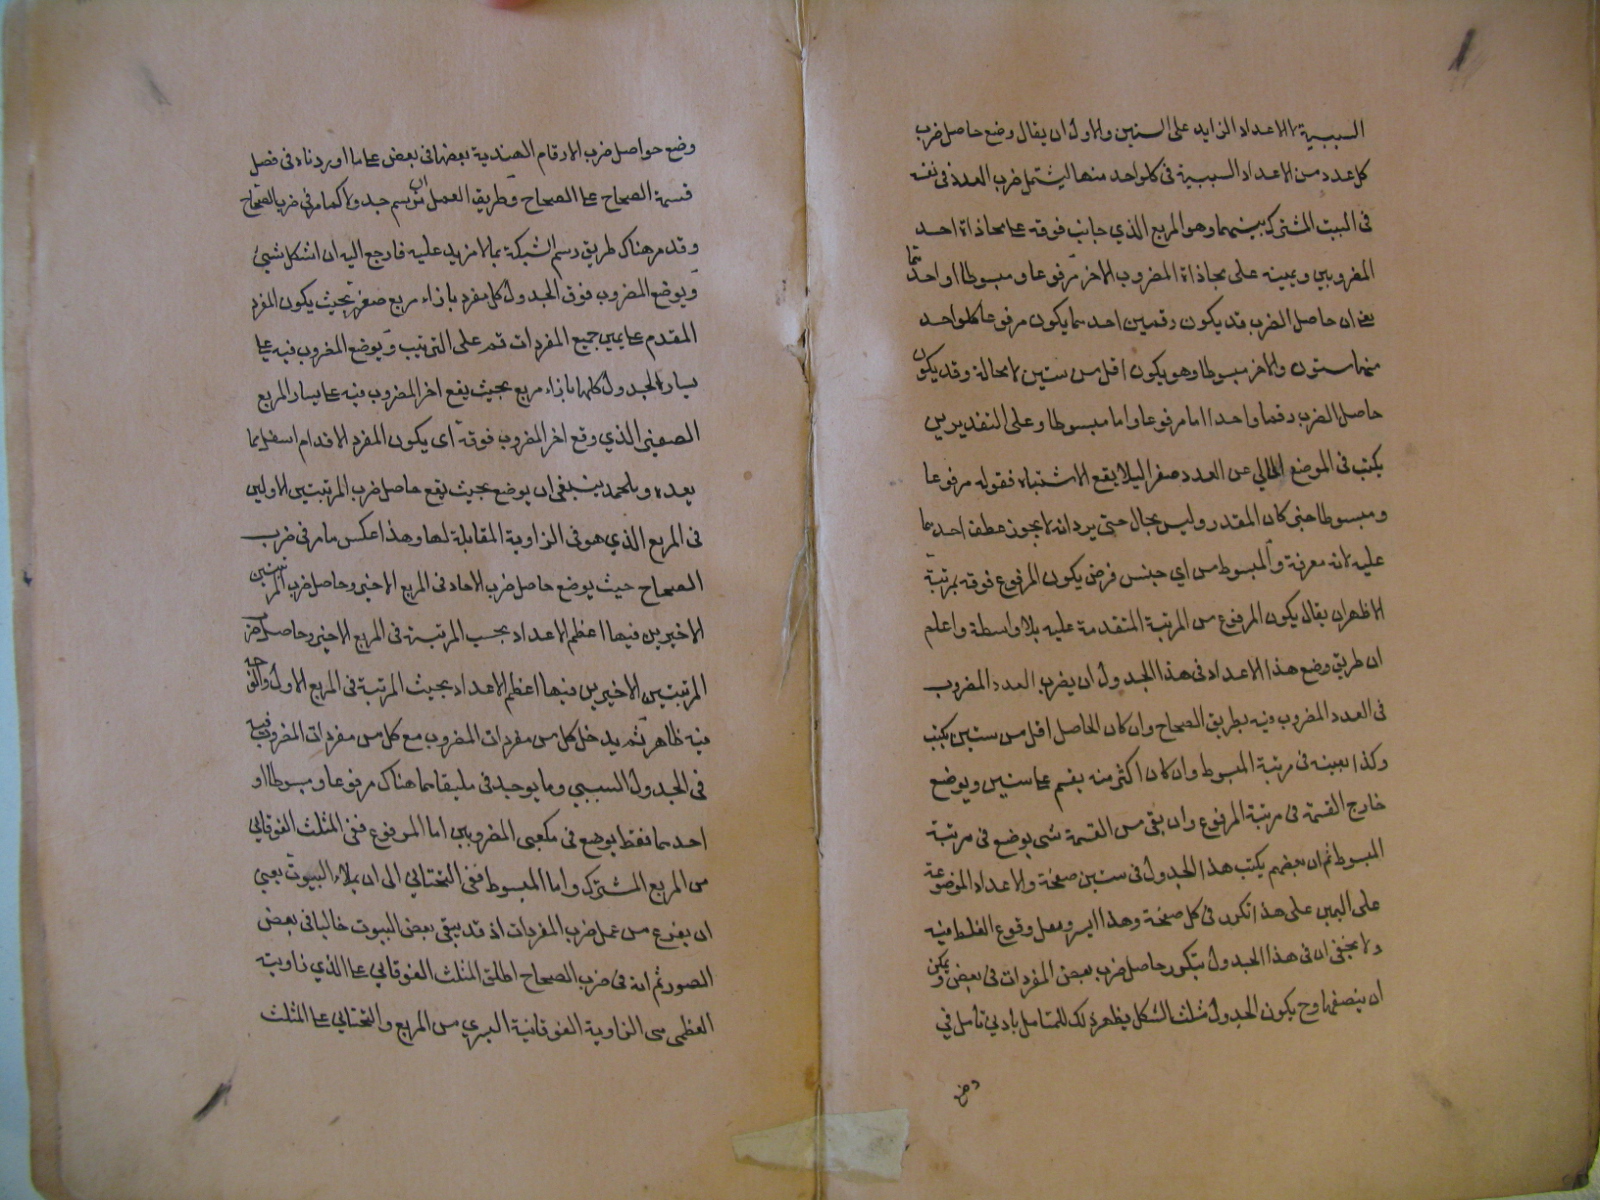 السببية لا الاعداد الزايد على الستين والاول ان يقال وضع حاصل ضرب
كل عدد من الاعداد السببية فى كلواحد منها ليشتمل ضرب العدد فى نفسه
فى البيت المشترك بينهما وهو المربع الذي جانب فوقه على محاذاة احد
المضروبين ويمينه على محاذاة المضروب الاخر مرفوعا ومبسوطا او احدهما
يعنى ان حاصل الضرب قد يكون رقمين احدهما يكون مرفوعا كلواحد
منها ستون والاخر مبسوطا وهو يكون اقل من ستين لا محالة وقد يكون
حاصل الضرب رقما واحدا اما مرفوعا واما مبسوطا وعلى التقديرين
يكتب فى الموضع الخالي عن العدد صفرا ليلا يقع الاشتباه فقوله مرفوعا
ومبسوطا حتى كان المقدر وليس بحال حتى يرد انه لا يجوز عطف احدهما
عليه لانه معرفة والمبسوط من اي جنس فرض يكون المرفوع فوقه بمرتبة
الاظهر ان يقال يكون المرفوع من المرتبة المتقدمة عليه بلا واسطة واعلم
ان طريق وضع هذا الاعداد فى هذا الجدول ان يضرب العدد المضروب
فى العدد المضروب فيه بطريق الصحاح وان كان الحاصل اقل من ستين يكتب
وكذا بعينه فى مرتبة المبسوط وان كان اكثر منه يقسم على ستين ويوضع
خارج القسمة فى مرتبة المرفوع وان بقى من القسمة شى يوضع فى مرتبة
المبسوط ثم ان بعضهم يكتب هذا الجدول فى ستين صفحة والاعداد الموضوعة
على اليمين على هذا تكون فى كل صفحة وهذا ايسر وقوع الغلط فيه
ولا يخفى ان فى هذا الجدول يتكرر حاصل ضرب بعض المفردات فى بعض ويمكن
ان ينصفها وح يكون الجدول مثلث الشكل يظهر ذلك للمتامل بادنى تامل فى
وضع
وضع حواصل ضرب الارقام الهندية بعضها فى بعض على ما اوردناه فى فصل
قسمة الصحاح على الصحاح وطريق العمل ان نرسم جدولا كما مر فى ضرب الصحاح
وقد مر هناك طريق رسم الشبكة بما لا مزيد عليه فارجع اليه ان اشكل شيئ
ويوضع المضروب فوق الجدول كل مفرد بازاء مربع صغير بحيث يكون المفرد
المقدم على يمين جميع المفردات ثم على الترتيب ويوضع المضروب فيه على
يسار الجدول كلها بازاء مربع بحيث يقع اخر المضروب فيه على يسار المربع
الصغير الذي وقع اخر المضروب فوقه اى يكون المفرد الاقدام اسفل مما
بعده وبالجملة ينبغى ان يوضع بحيث يقع حاصل ضرب المرتبتين الاولين
فى المربع الذي هو فى الزاوية المقابلة لها وهذا عكس ما مر فى ضرب
الصحاح حيث يوضع حاصل ضرب الاحاد فى المربع الاخير وحاصل ضرب المرتبتين
الاخيرين فيها اعظم الاعداد بحسب المرتبة فى المربع الاخير وحاصل ضرب
المرتبتين الاخيرين فيها اعظم الاعداد بحيث المرتبة فى المربع الاول والوجه
فيه ظاهر ثم يدخل كل من مفردات المضروب مع كل من مفردات المضروب فيه
فى الجدول السببي وما يوجد فى ملتقاهما هناك مرفوعا ومبسوطا او
احدهما فقط يوضع فى مكعبى المضروبين اما المرفوع ففى المثلث الفوقانى
من المربع المشترك واما المبسوط ففى التحتاني الى ان يملاء البيوت يعنى
ان يفرغ من عمل ضرب المفردات اذ قد يبقى بعض البيوت خاليا فى بعض
الصور ثم انه فى ضرب الصحاح اطلق المثلث الفوقاني على الذي زاويته
العظمى هى الزاوية الفوقانية اليسري من المربع والتحتانى على المثلث